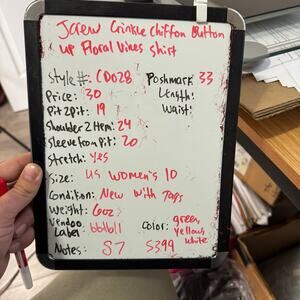 Jcrew Crinkle Chiffon Button
up Floral Vines shirt
Style#: CD028 Poshmark 33
Price: 30 Length:
Pit 2 pit: 19 Waist:
Shoulder 2 Hem: 24
Sleeve from Pit: 20
Stretch: yes
Size: US Women's 10
Condition: New with Tags
Weight: 6oz
Vendoo Label 661611 Color: green, yellow, white
Notes: S7 S399